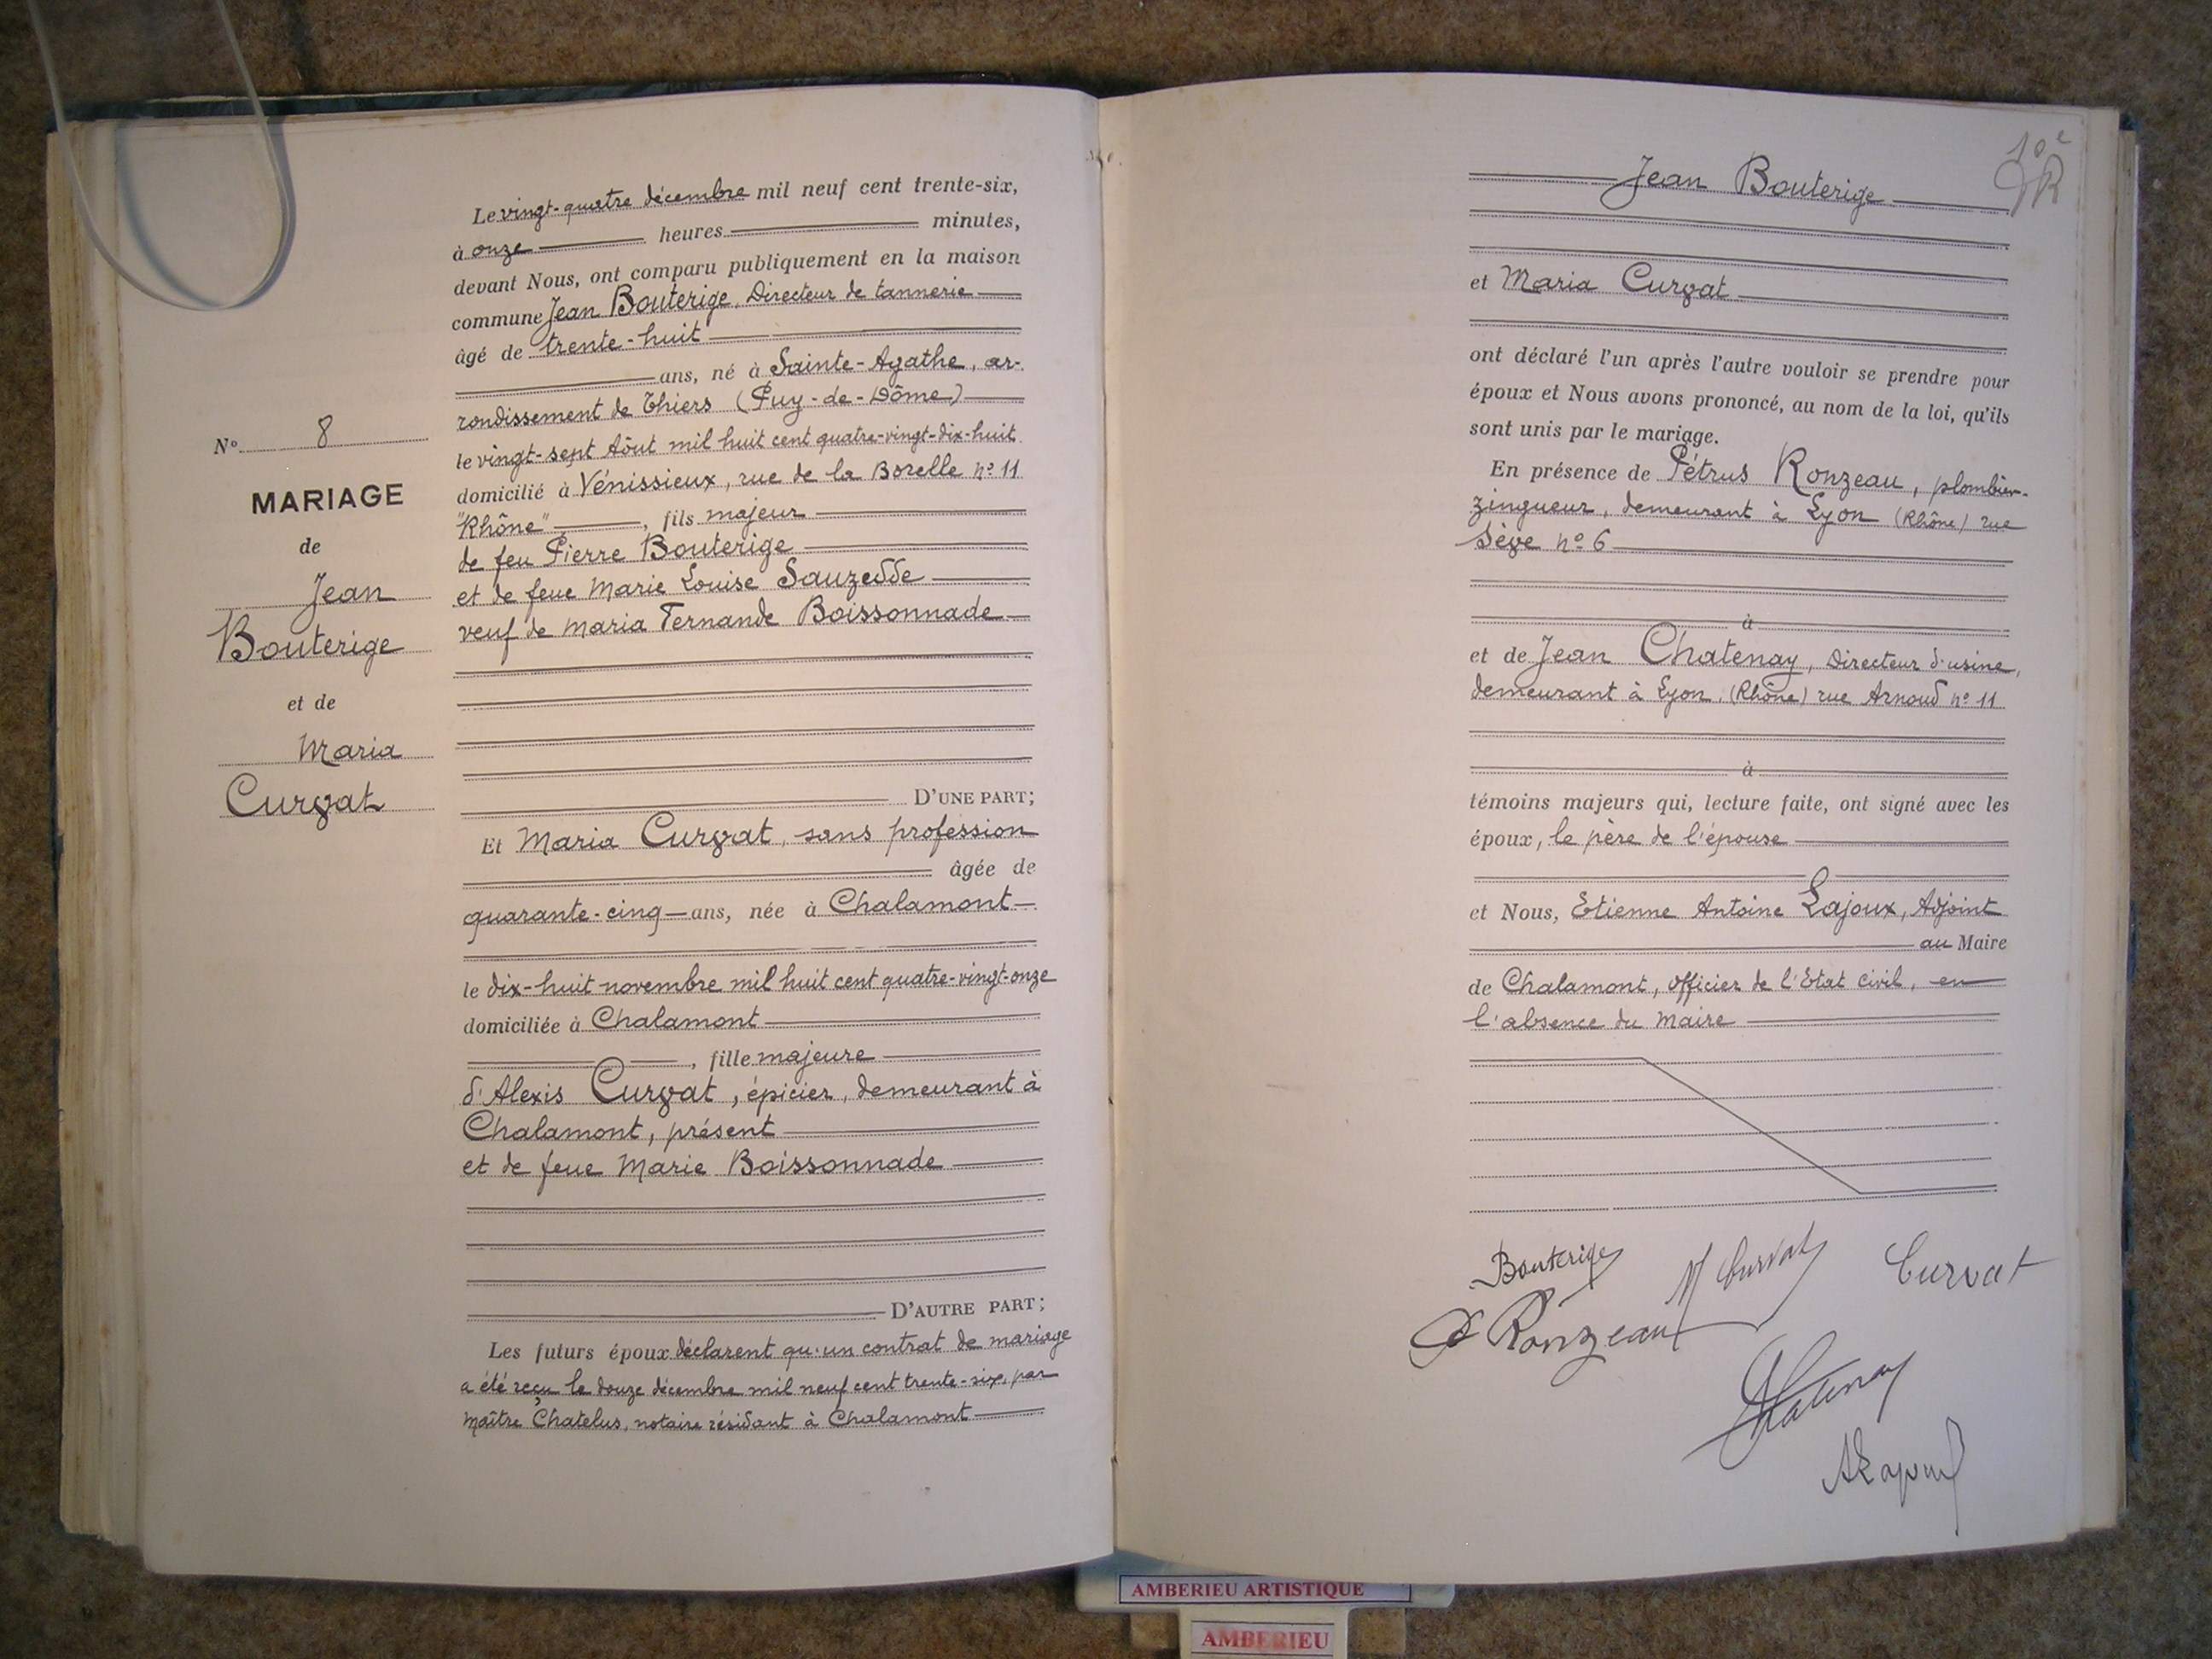 N° 8
MARIAGE
de
Jean
Bouterige
et de
Maria
Curvat
Le vingt-quatre décembre mil neuf cent trente-six,
à onze heures minutes,
devant Nous, ont comparu publiquement en la maison
commune Jean Bouterige, Directeur de tannerie
âgé de trente-huit
ans, né à Sainte-Agathe, ar-
rondissement de Thiers (Puy-de-Dôme)
le vingt-sept Août mil huit cent quatre-vingt-dix-huit
domicilié à Vénissieux, rue de la Borelle n° 11
"Rhône", fils majeur
de feu Pierre Bouterige
et de feue Marie Louise Sauzedde
veuf de Maria Fernande Boissonnade
D'UNE PART;
Et Maria Curvat, sans profession
âgée de
quarante-cinq ans, née à Chalamont
le dix-huit novembre mil huit cent quatre-vingt-onze
domiciliée à Chalamont
, fille majeure
d'Alexis Curvat, épicier, demeurant à
Chalamont, présent
et de feue Marie Boissonnade
D'AUTRE PART;
Les futurs époux déclarent qu'un contrat de mariage
a été reçu le douze décembre mil neuf cent trente-six, par
Maître Chatelus, notaire résidant à Chalamont
10e
Jean Bouterige
et Maria Curvat
ont déclaré l'un après l'autre vouloir se prendre pour
époux et Nous avons prononcé, au nom de la loi, qu'ils
sont unis par le mariage.
En présence de Pétrus Ronzeau, plombier-
zingueur, demeurant à Lyon (Rhône) rue
Sève n° 6
à
et de Jean Chatenay, Directeur d'usine,
demeurant à Lyon, (Rhône) rue Arnoud n° 11
à
témoins majeurs qui, lecture faite, ont signé avec les
époux, le père de l'épouse
et Nous, Etienne Antoine Lajoux, Adjoint
au Maire
de Chalamont, officier de l'Etat Civil, en
l'absence du Maire
Bouterige M Curvat Curvat
P Ronzeau
Chatenay
A Lajoux
AMBERIEU ARTISTIQUE
AMBERIEU